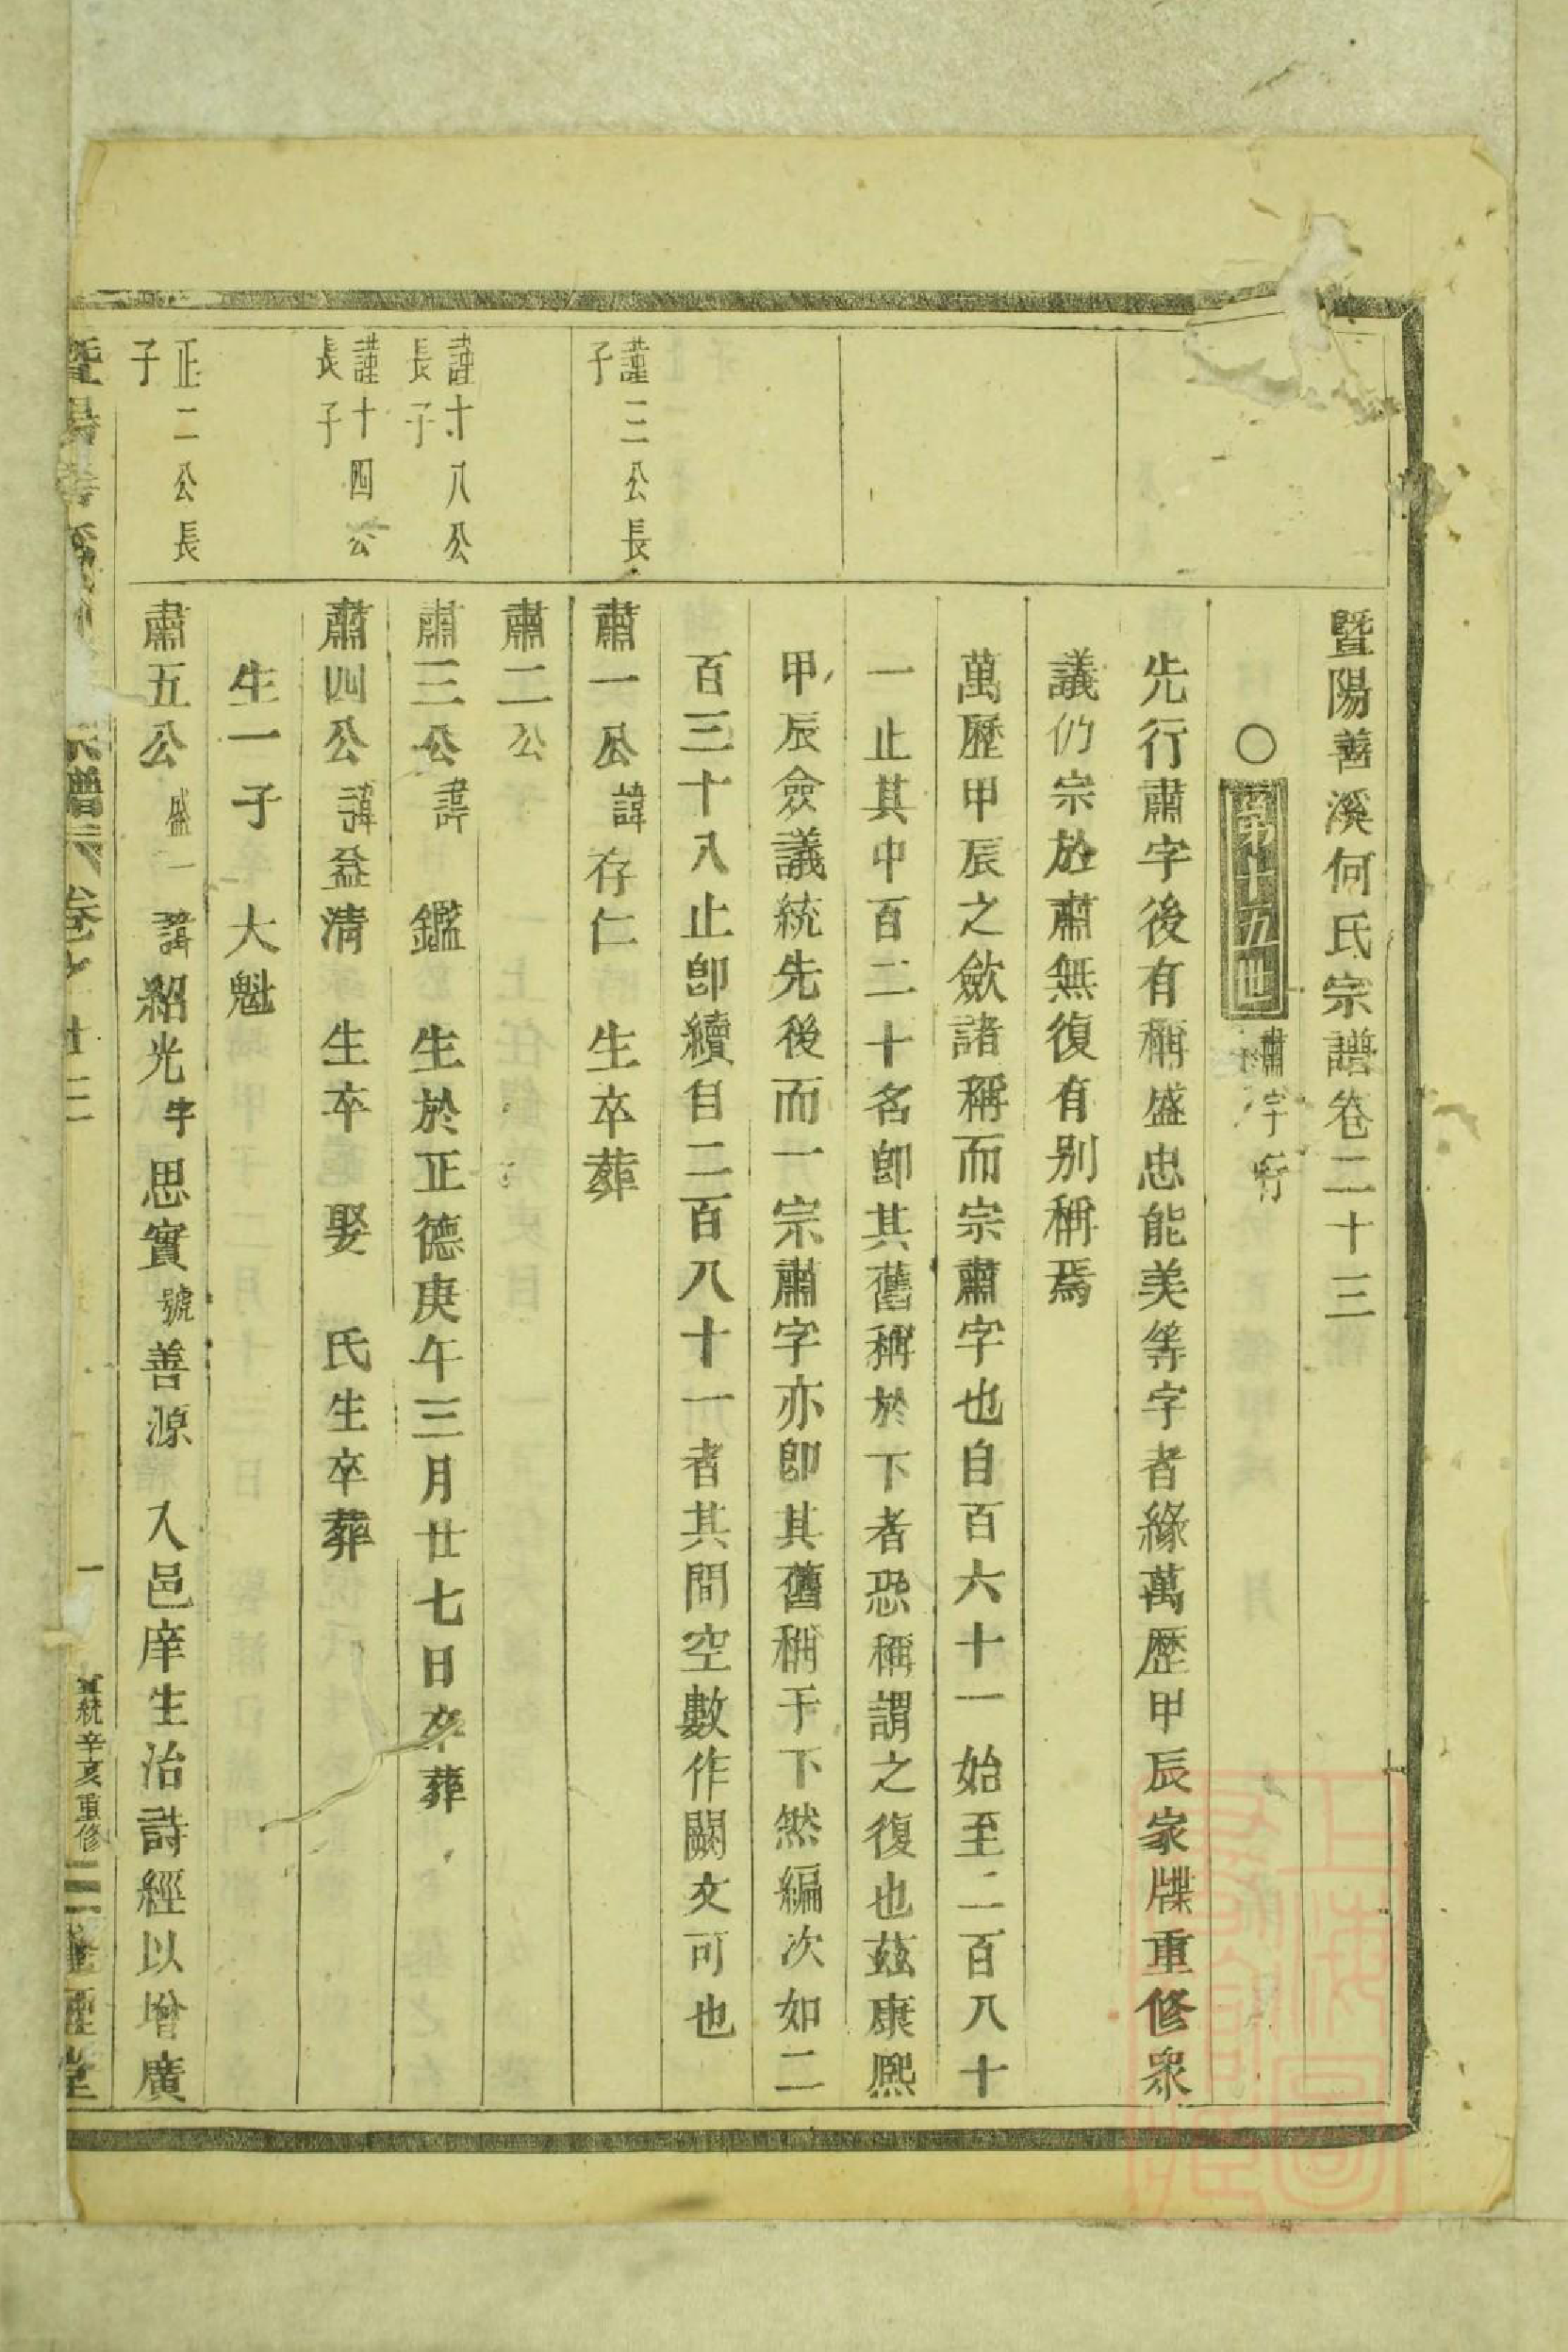 暨陽善溪何氏宗譜卷二十三
○第十五世 肅字行
先行肅字後有稱盛忠能美等字者緣萬歷甲辰家牒重修衆
議仍宗於肅無復有別稱焉
萬歷甲辰之歛諸稱而宗肅字也自百六十一始至二百八十
一止其中百二十名卽其舊稱於下者恐稱謂之復也茲康熙
甲辰僉議統先後而一宗肅字亦卽其舊稱于下然編次如二
百三十八止卽續自二百八十一者其間空數作闕文可也
謹三公長
子
肅一公諱存仁 生卒葬
肅二公
謹十八公
長子
肅三公諱 鑑 生於正德庚午三月廿七日卒葬
謹十四公
長子
肅四公諱益清 生卒 娶 氏生卒葬
生一子 大魁
正二公長
子
肅五公盛一諱紹光字思實號善源 入邑庠生治詩經以增廣
宗譜 一 統辛亥重修 堂